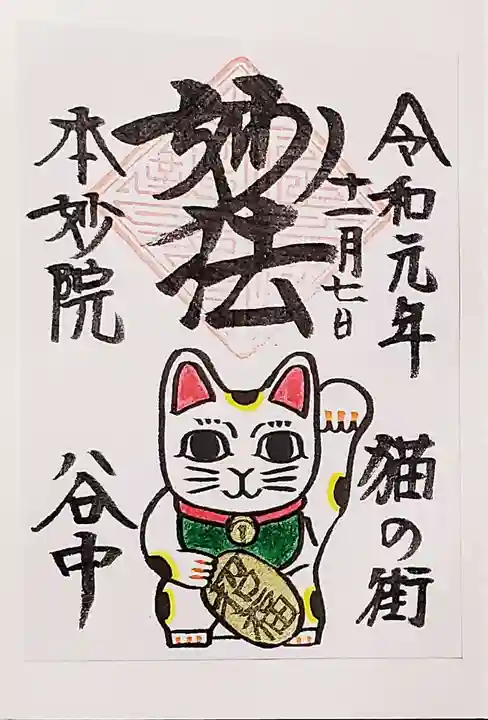 令和元年
十一月七日
妙法
本妙院
猫の街
谷中
招福